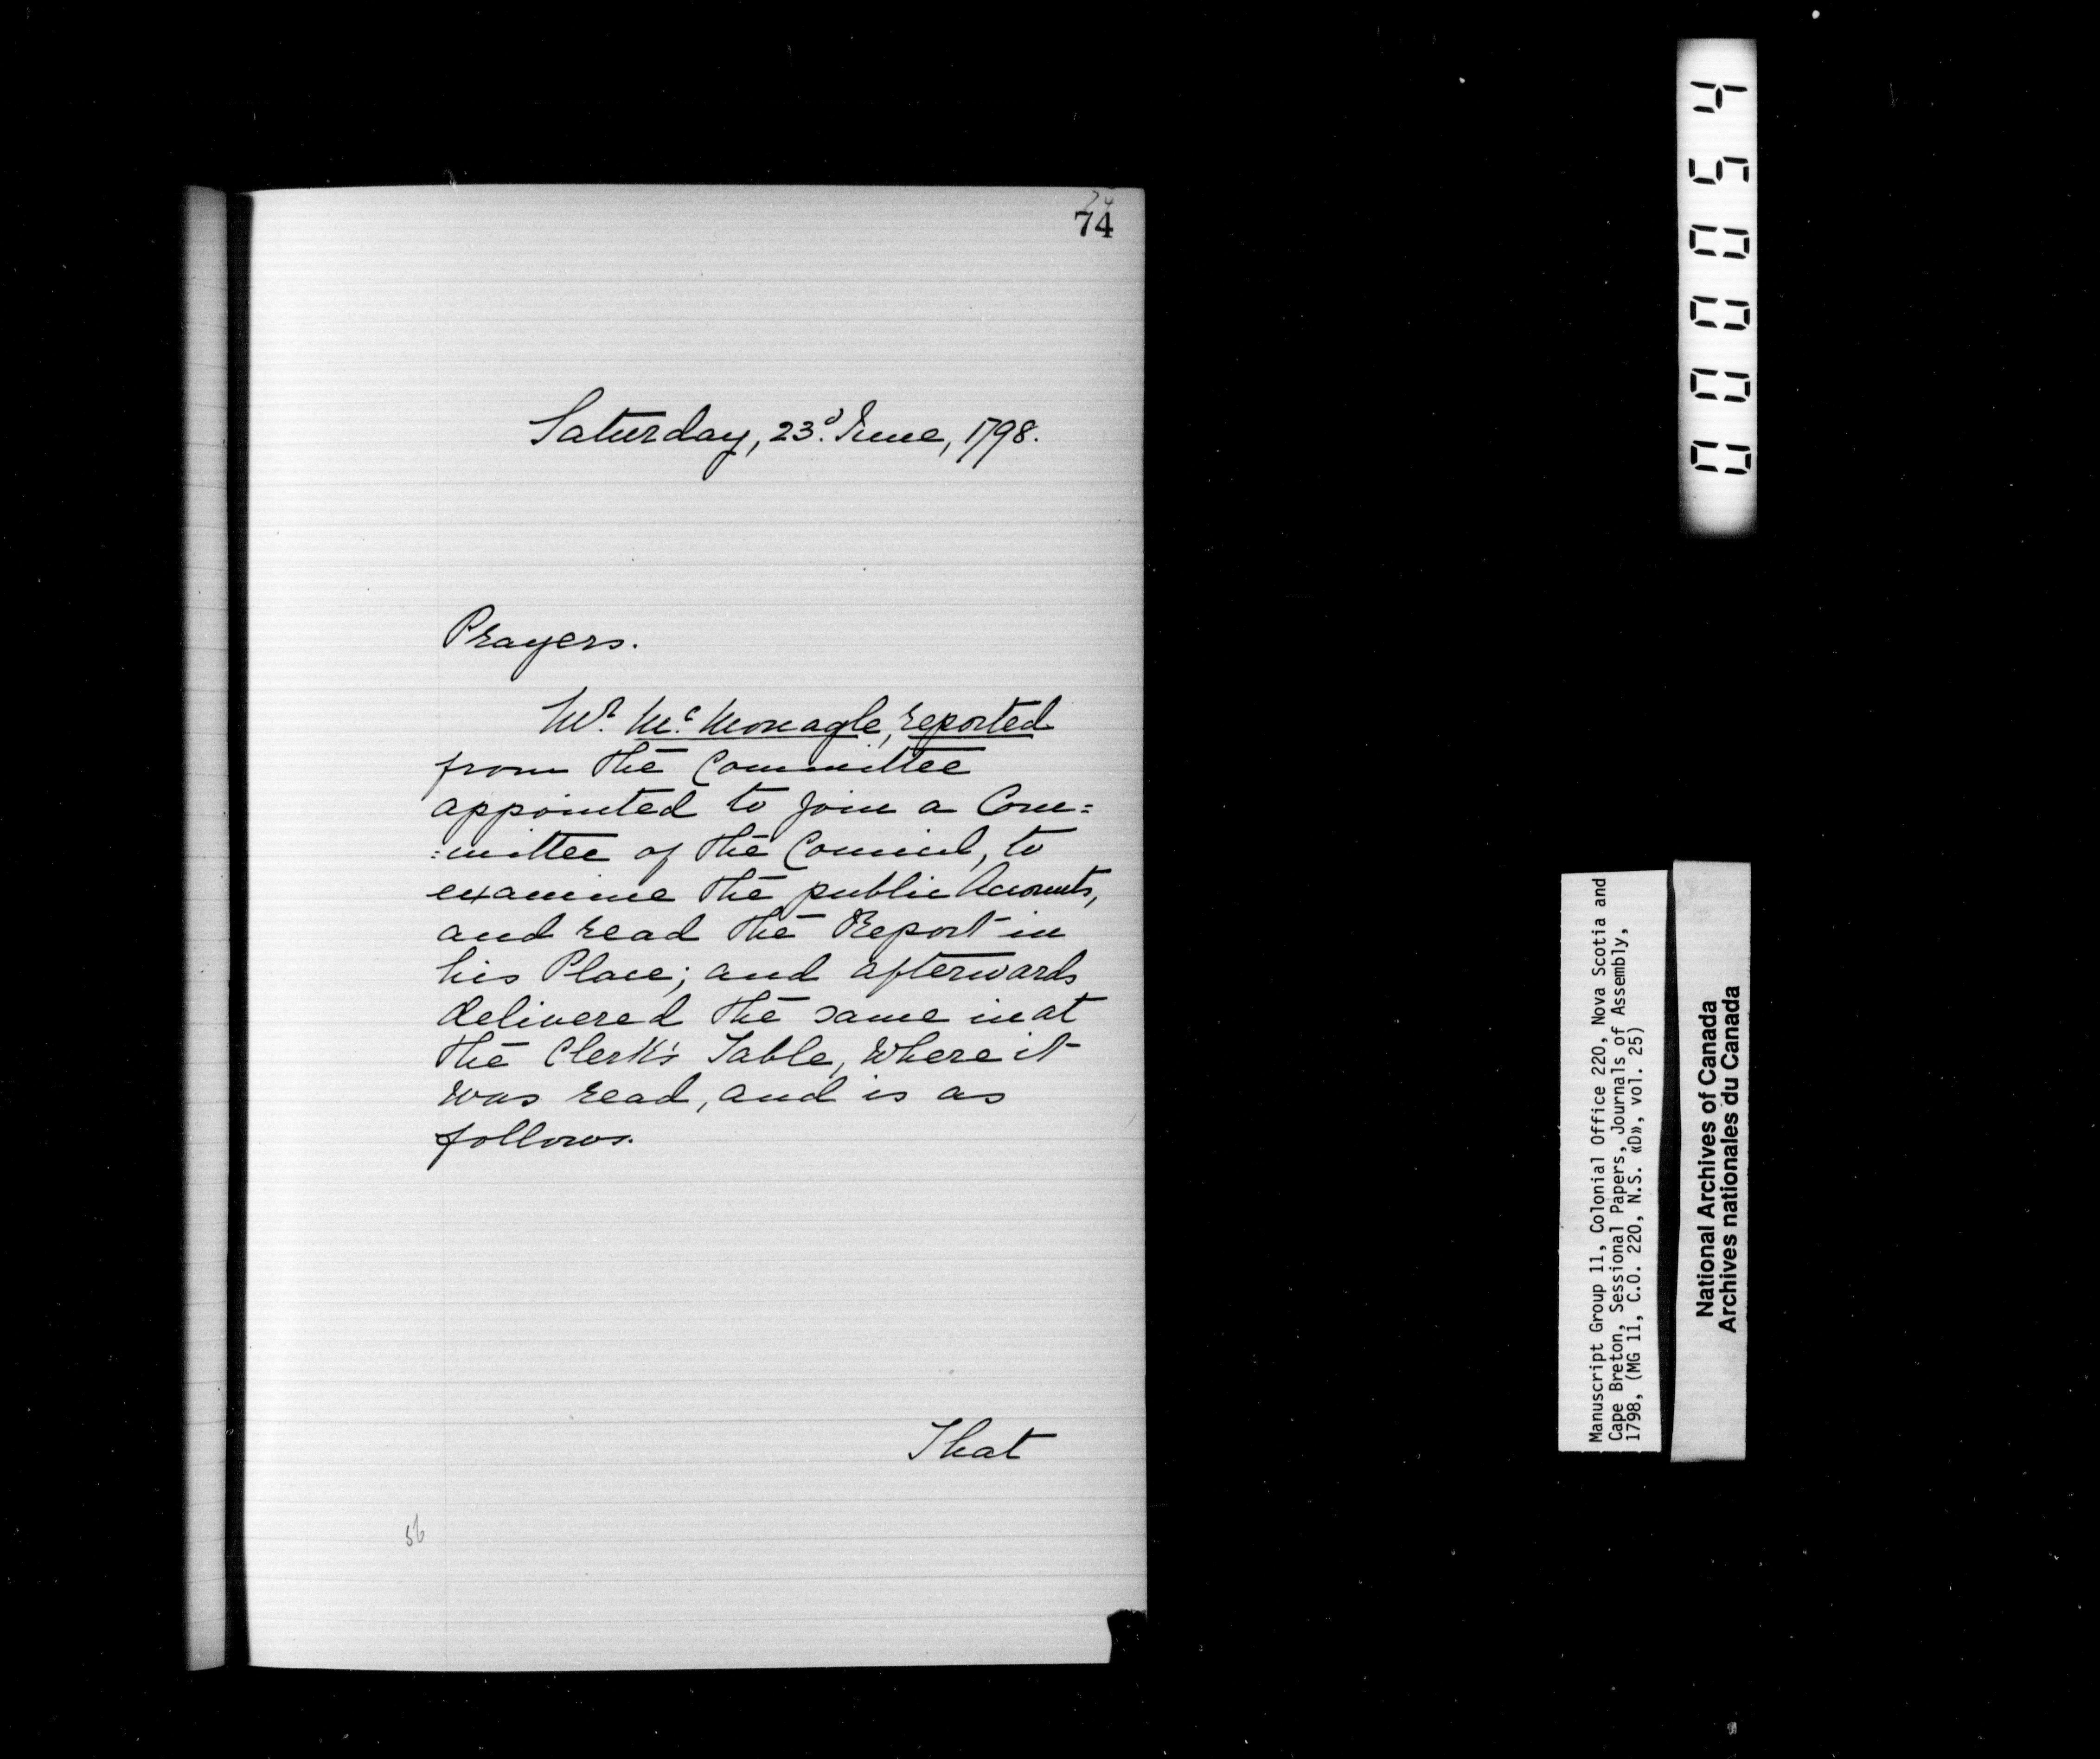 24
74
Saturday, 23d. June, 1798.
Prayers.
Mr. Mc. Monagle, reported
from the Committee
appointed to join a Com=
=mittee of the Council, to
examine the public Accounts,
and read the Report in
his Place; and afterwards
delivered the same in at
the Clerk's Table, Where it
was read, and is as
follows.
That
56
000054
Manuscript Group 11, Colonial Office 220, Nova Scotia and
Cape Breton, Sessional Papers, Journals of Assembly,
1798, (MG 11, C.O. 220, N.S. «D», vol. 25)
National Archives of Canada
Archives nationales du Canada